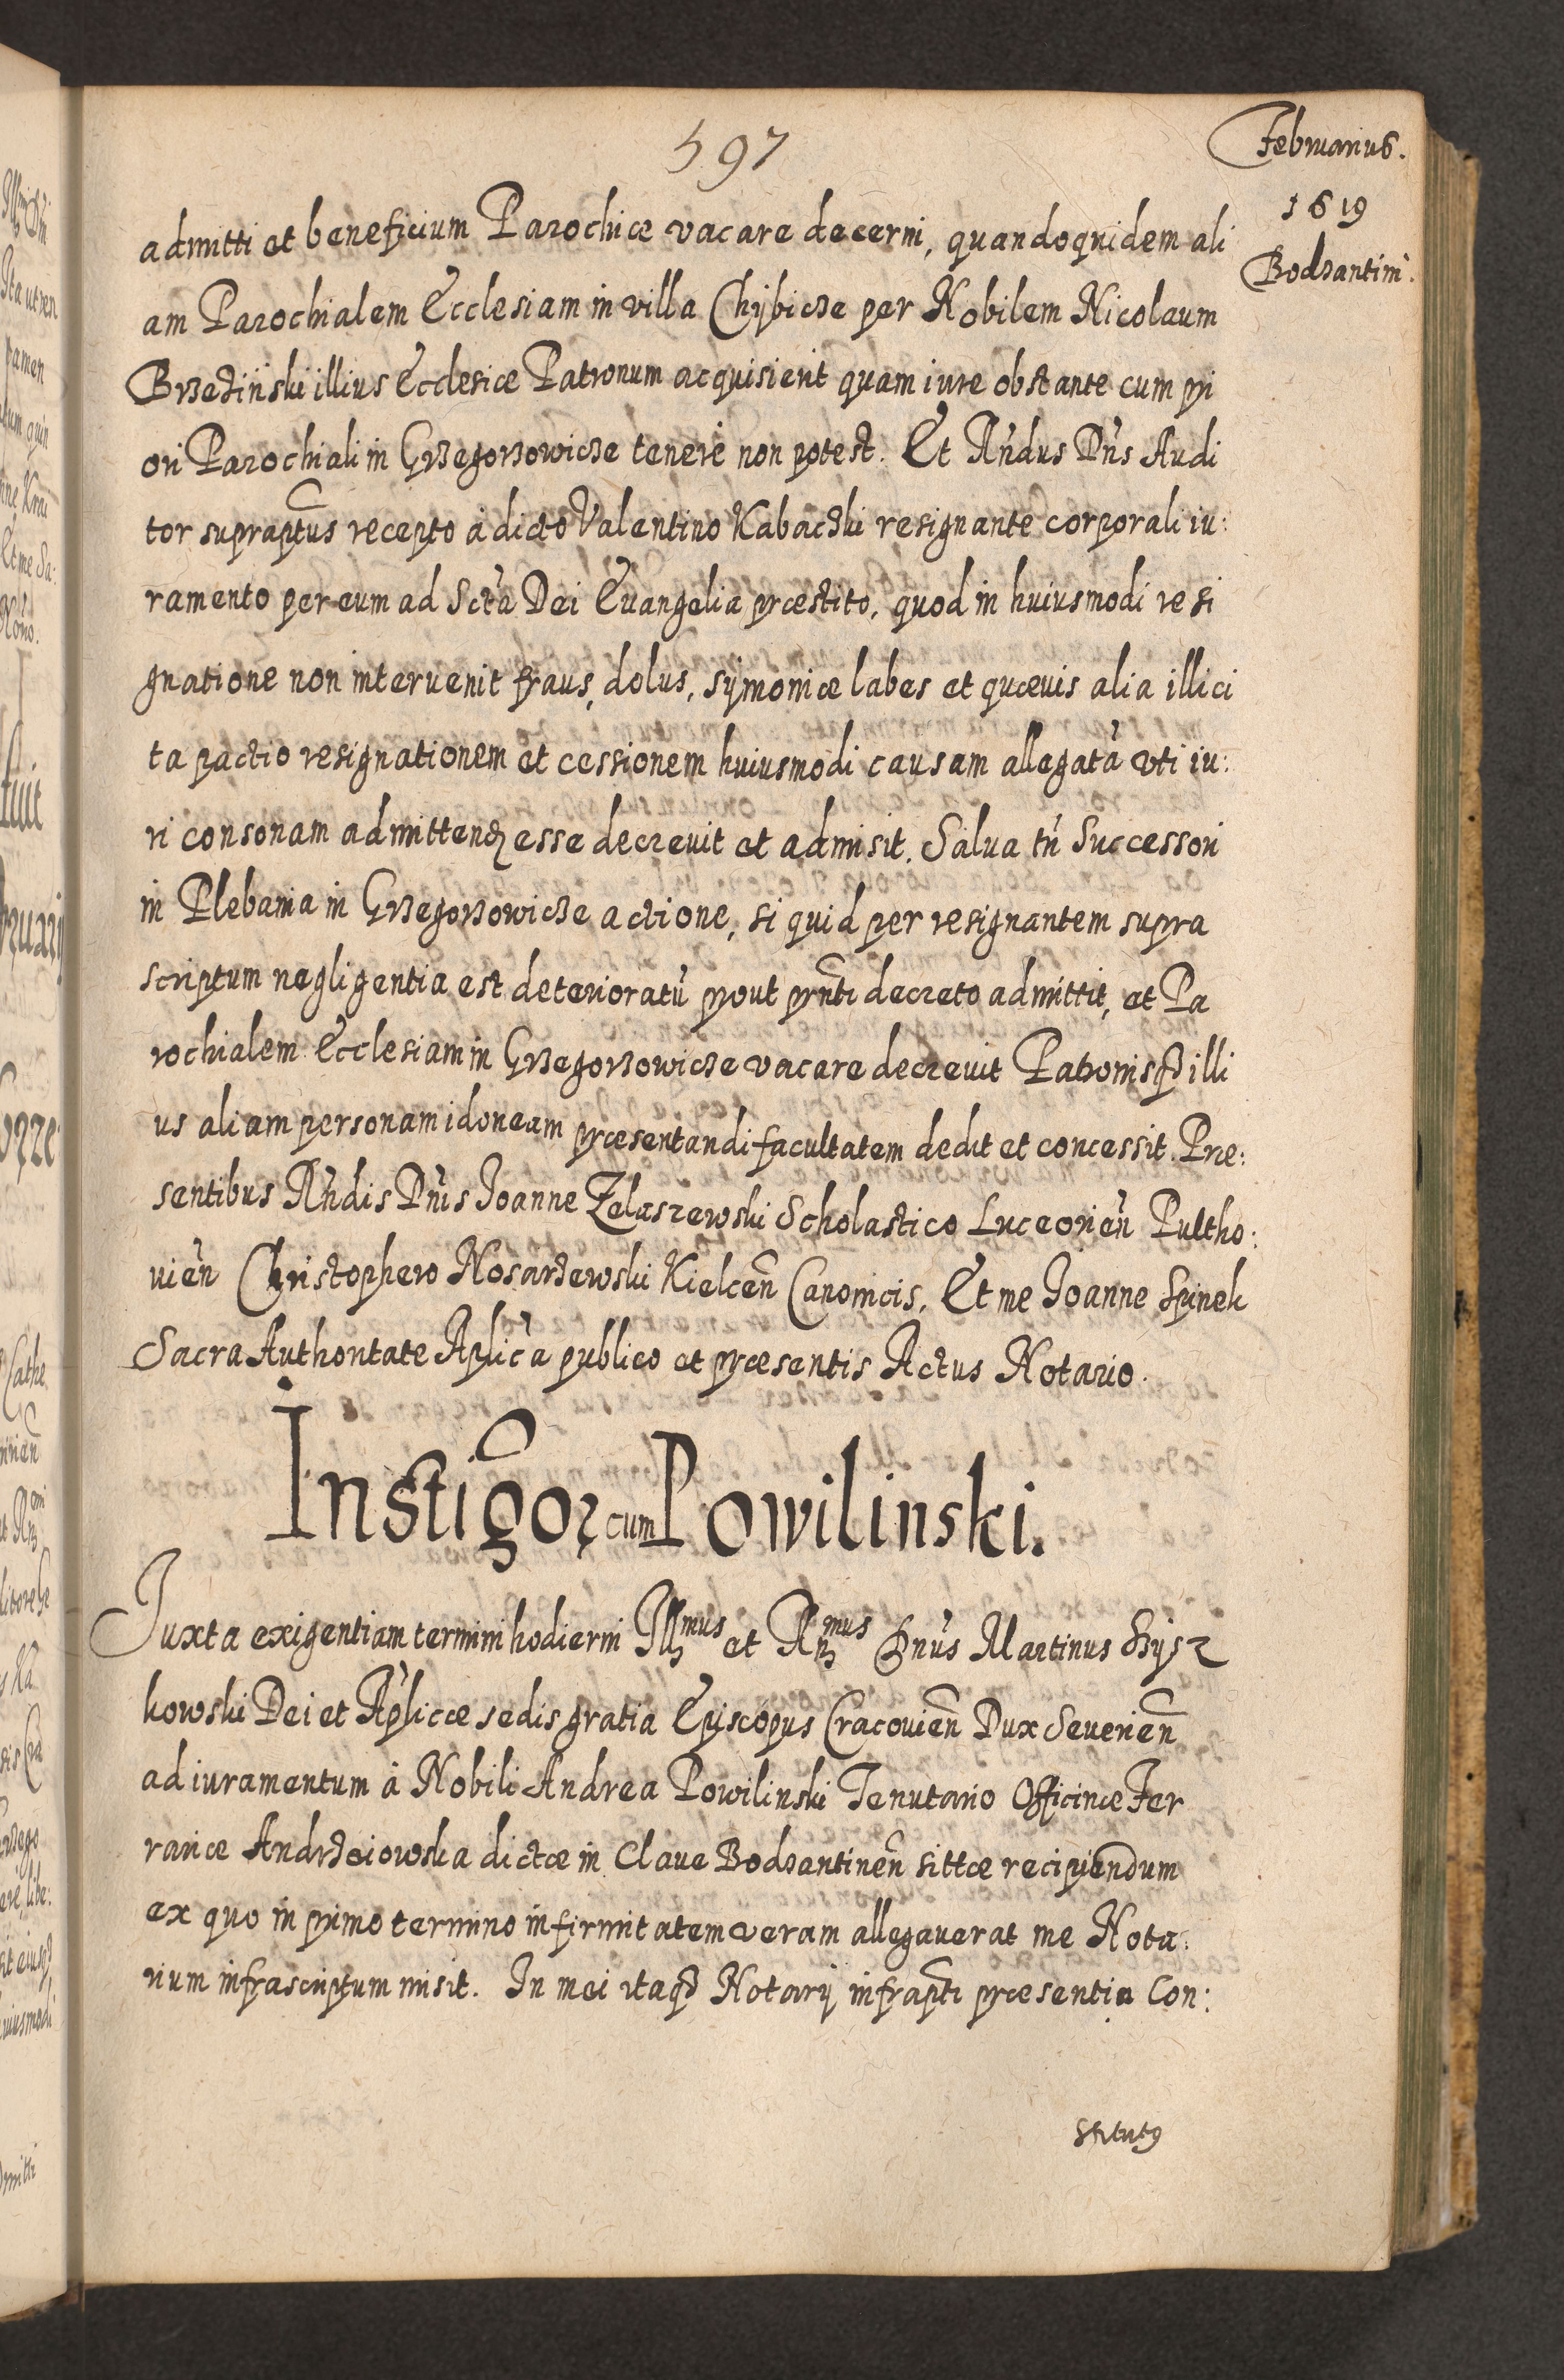 597
Februarius.
1619
Bodzantini.
admitti et beneficium Parochiæ vacare decerni, quandoquidem ali
am Parochialem Ecclesiam in villa Chÿbicze per Nobilem Nicolaum
Brzezinski illius Ecclesiæ Patronum acquisierit quam iure obstante cum pri
ori Parochiali in Grzegorzowicze tenere non potest. Et Rńdus Dńs Audi
tor supraptus recepto à dicto Valentino Kabaczki resignante corporali iu:
ramento per eum ad Sctà Dei Euangelia præstito, quod in huiusmodi resi
gnatione non interuenit fraus, dolus, sÿmoniæ labes et quæuis alia illici
ta pactio resignationem et cessionem huiusmodi causam allegatà vti iu:
ri consonam admittendꝫ esse decreuit et admisit. Salua tń Successori
in Plebania in Grzegorzowicze actione, si quid per resignantem supra
scriptum negligentia est deterioratù prout prnti decreto admittit, et Pa
rochialem Ecclesiam in Grzegorzowicze vacare decreuit Patronisqꝫ illi
us aliam personam idoneam præsentandi facultatem dedit et concessit. Præ:
sentibus Rńdis Dńis Joanne Zelaszewski Scholastico Luceorień Pultho:
uień Christophero Nosarzewski Kielceñ Canonicis, Et me Joanne Spinek
Sacra Authoritate Aplicà publico et præsentis Actus Notario.
Instigor cum Powilinski.
Juxta exigentiam termini hodierni Illmus et Rmus Dnús Martinus Szÿsz
kowski Dei et Aplicæ sedis gratia Episcopus Cracouieñ Dux Seuerieñ
ad iuramentum à Nobili Andrea Powilinski Tenutario Officinæ Fer
rariæ Andrzeiowska dictæ in Claue Bodzantineñ sittæ recipiendum
ex quo in primo termino infirmitatem veram allegauerat me Nota:
rium infrascriptum misit. In mei itaqꝫ Notarÿ infrapti præsentia Con:
stitutꝰ